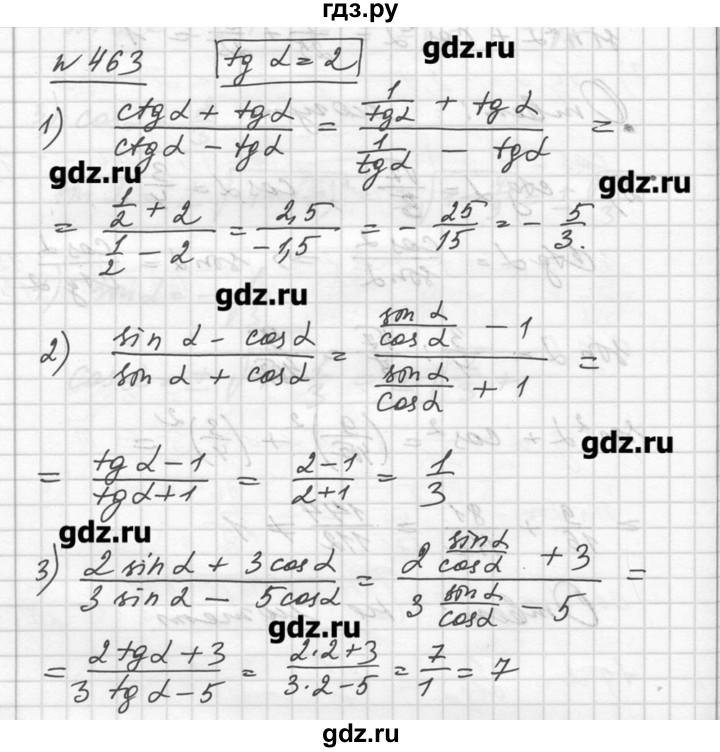 гдз.ру
№ 463 tg α = 2 gdz.ru
1) (ctg α + tg α)/(ctg α - tg α) = (1/tg α + tg α)/(1/tg α - tg α) =
gdz.ru gdz.ru
= (1/2 + 2)/(1/2 - 2) = 2,5/-1,5 = - 25/15 = - 5/3.
gdz.ru
2) (sin α - cos α)/(sin α + cos α) = (sin α/cos α - 1)/(sin α/cos α + 1) =
gdz.ru
= (tg α - 1)/(tg α + 1) = (2-1)/(2+1) = 1/3
gdz.ru
3) (2 sin α + 3 cos α)/(3 sin α - 5 cos α) = (2 sin α/cos α + 3)/(3 sin α/cos α - 5) =
gdz.ru
= (2 tg α + 3)/(3 tg α - 5) = (2·2+3)/(3·2-5) = 7/1 = 7
gdz.ru